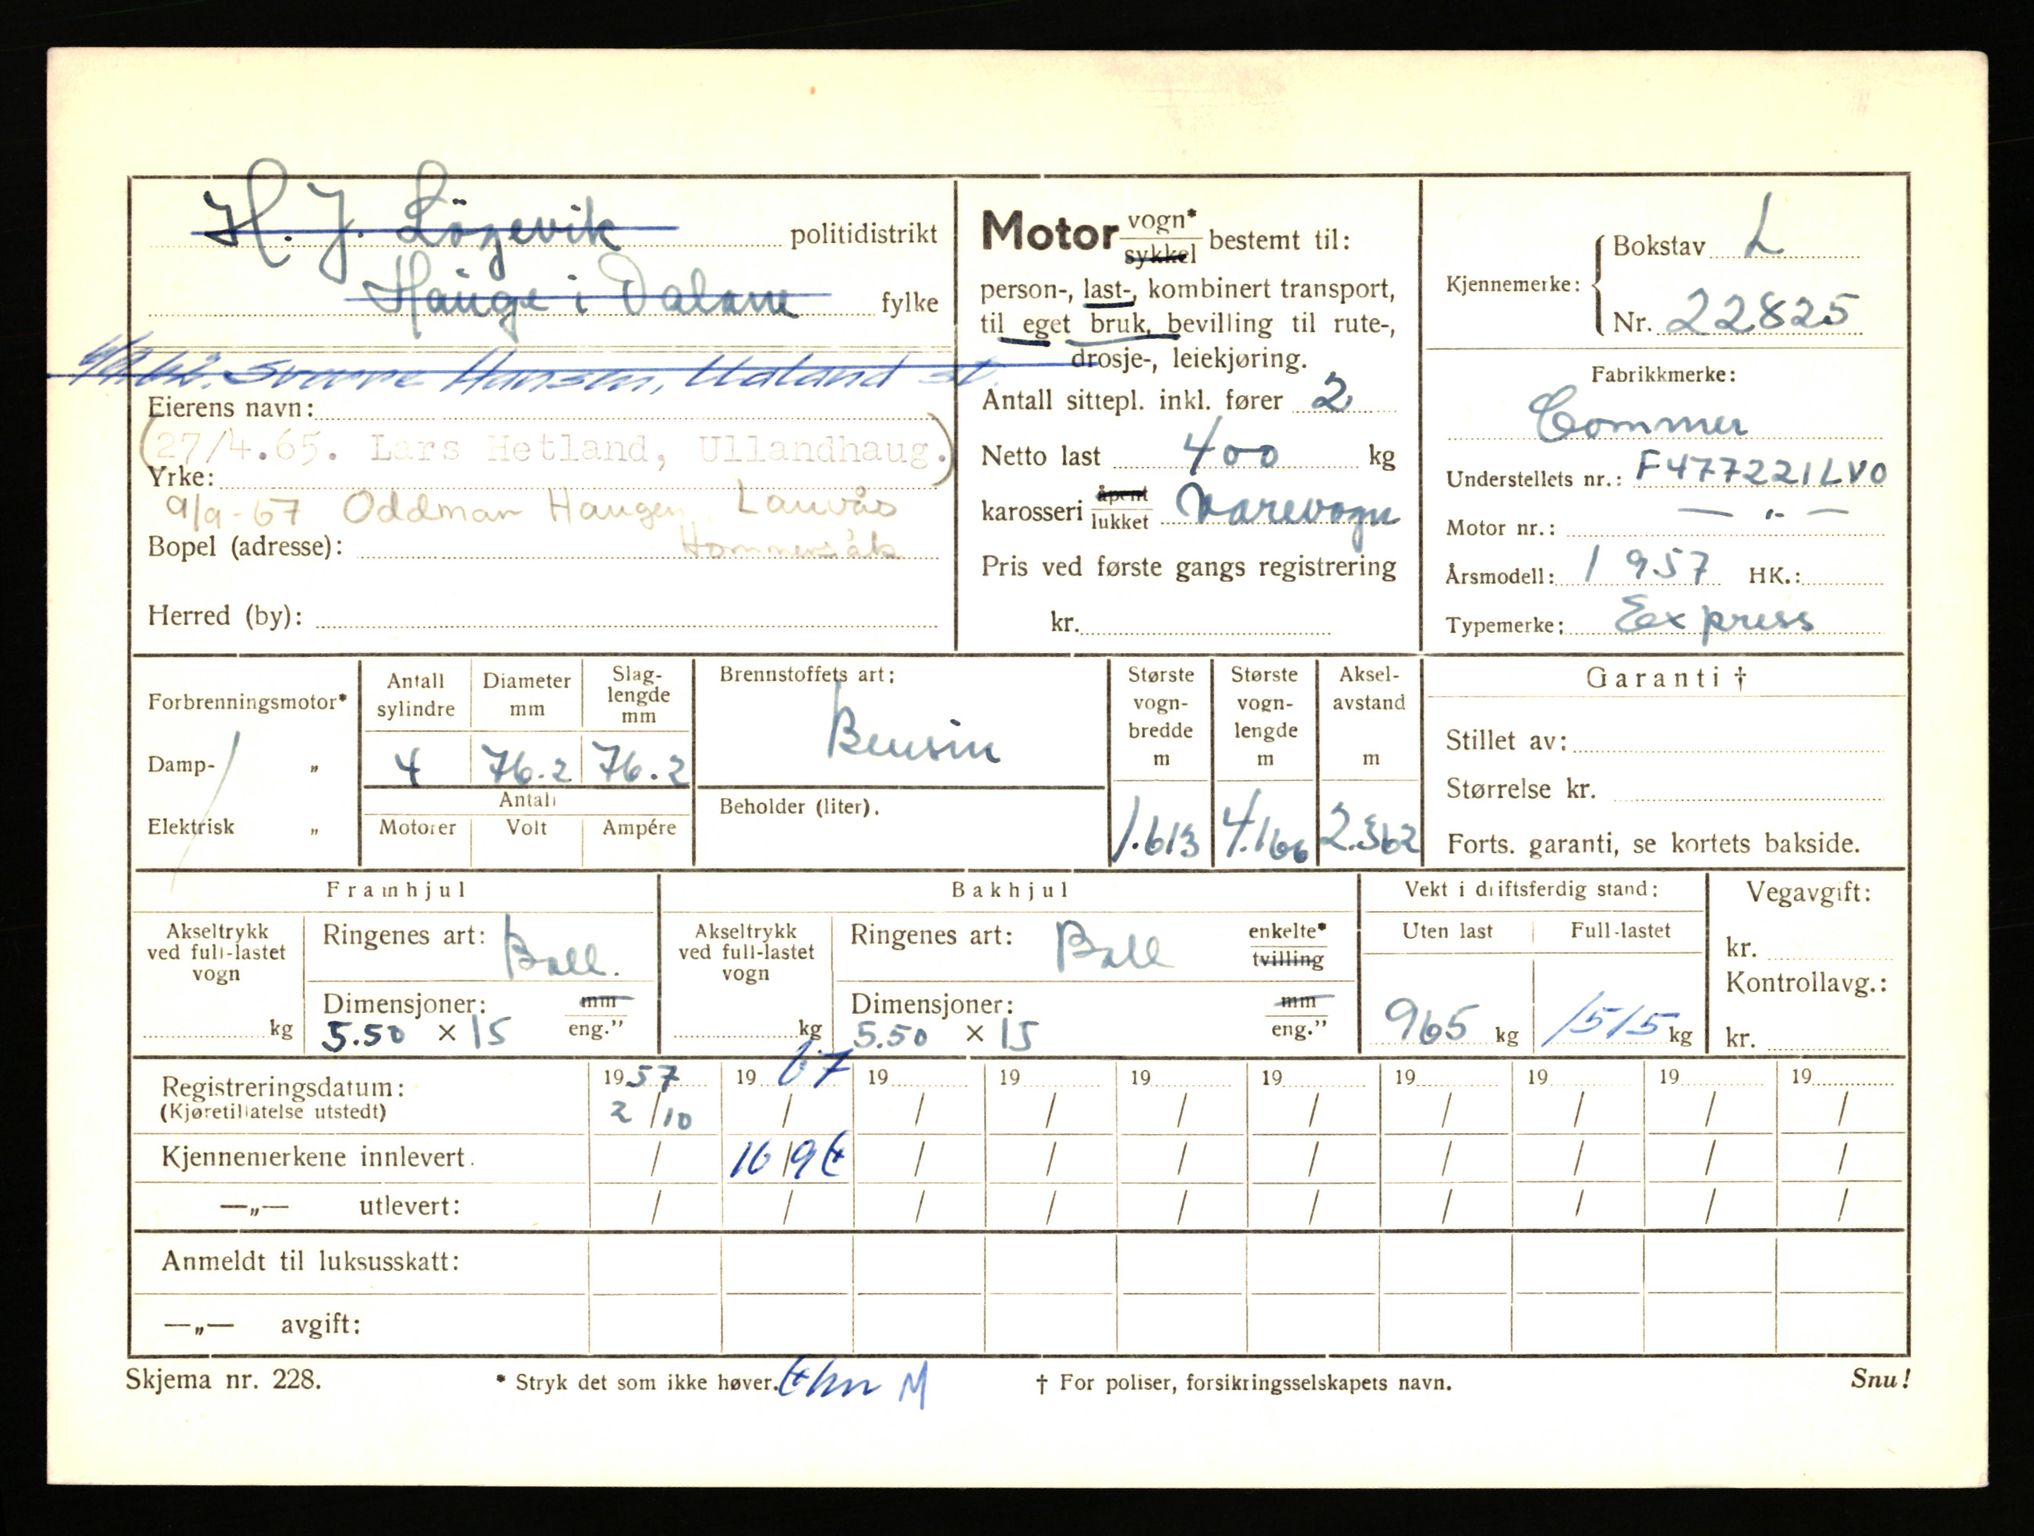 H. J. Lögevik politidistrikt
Hauge i Dalane fylke
Sverre Hansen,
Eierens navn:
(27/4.65. Lars Hetland, Ullandhaug.)
Yrke:
9/9-67 Oddmar Haugen, Lauvås
Bopel (adresse): Hommersåk
Herred (by):
Motor vogn* sykkel bestemt til:
person-, last-, kombinert transport,
til eget bruk, bevilling til rute-,
drosje-, leiekjøring.
Antall sittepl. inkl. fører 2
Netto last 400 kg
karosseri åpent lukket Varevogn
Pris ved første gangs registrering
kr.
Kjennemerke: Bokstav L
Nr. 22825
Fabrikkmerke:
Commer
Understellets nr.: F477221LVO
Motor nr.: — „ —
Årsmodell: 1957 HK.:
Typemerke: Express
Forbrenningsmotor*
Damp- „
Elektrisk „
Antall sylindre
Diameter mm
Slag-lengde mm
4 76.2 76.2
Antall
Motorer Volt Ampére
Brennstoffets art:
Bensin
Beholder (liter).
Største vogn-bredde m
1.613
Største vogn-lengde m
4.166
Aksel-avstand m
2.362
Garanti †
Stillet av:
Størrelse kr.
Forts. garanti, se kortets bakside.
Framhjul
Akseltrykk ved full-lastet vogn
kg
Ringenes art: Ball.
Dimensjoner: mm
5.50 × 15 eng."
Bakhjul
Akseltrykk ved full-lastet vogn
kg
Ringenes art: Ball enkelte* tvilling
Dimensjoner: mm
5.50 × 15 eng."
Vekt i driftsferdig stand:
Uten last Full-lastet
965 kg 1515 kg
Vegavgift:
kr.
Kontrollavg.:
kr.
Registreringsdatum: 1957 1967 19 19 19 19 19 19 19 19
(Kjøretillatelse utstedt) 2/10 / / / / / / / / /
Kjennemerkene innlevert. / 16/9 / / / / / / / /
—„— utlevert: / / / / / / / / / /
Anmeldt til luksusskatt:
—„— avgift:
Skjema nr. 228.
* Stryk det som ikke høver.
M
† For poliser, forsikringsselskapets navn.
Snu!